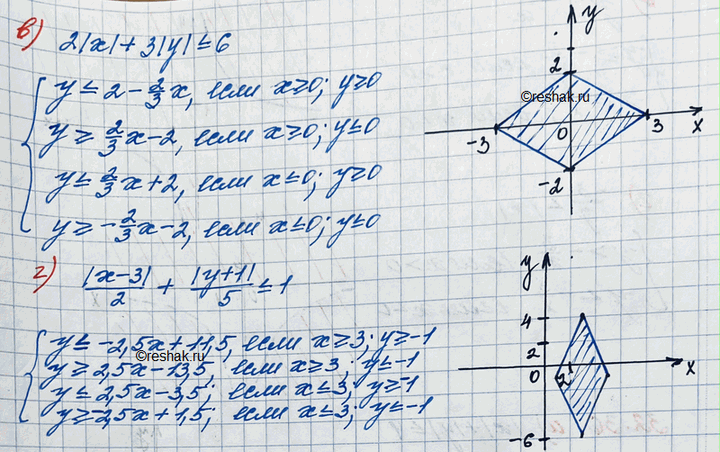 в) 2|x| + 3|y| ≤ 6
y ≤ 2 - 2/3 x, если x ≥ 0; y ≥ 0
y ≥ 2/3 x - 2, если x ≥ 0; y ≤ 0
y ≤ 2/3 x + 2, если x ≤ 0; y ≥ 0
y ≥ -2/3 x - 2, если x ≤ 0; y ≤ 0
y
2
©reshak.ru
-3
0
3
x
-2
г) |x-3|/2 + |y+1|/5 ≤ 1
y ≤ -2,5x + 11,5, если x ≥ 3; y ≥ -1
©reshak.ru
y ≥ 2,5x - 13,5, если x ≥ 3, y ≤ -1
y ≤ 2,5x - 3,5, если x ≤ 3, y ≥ -1
y ≥ -2,5x + 1,5; если x ≤ 3; y ≤ -1
y
4
2
0
2
x
-6